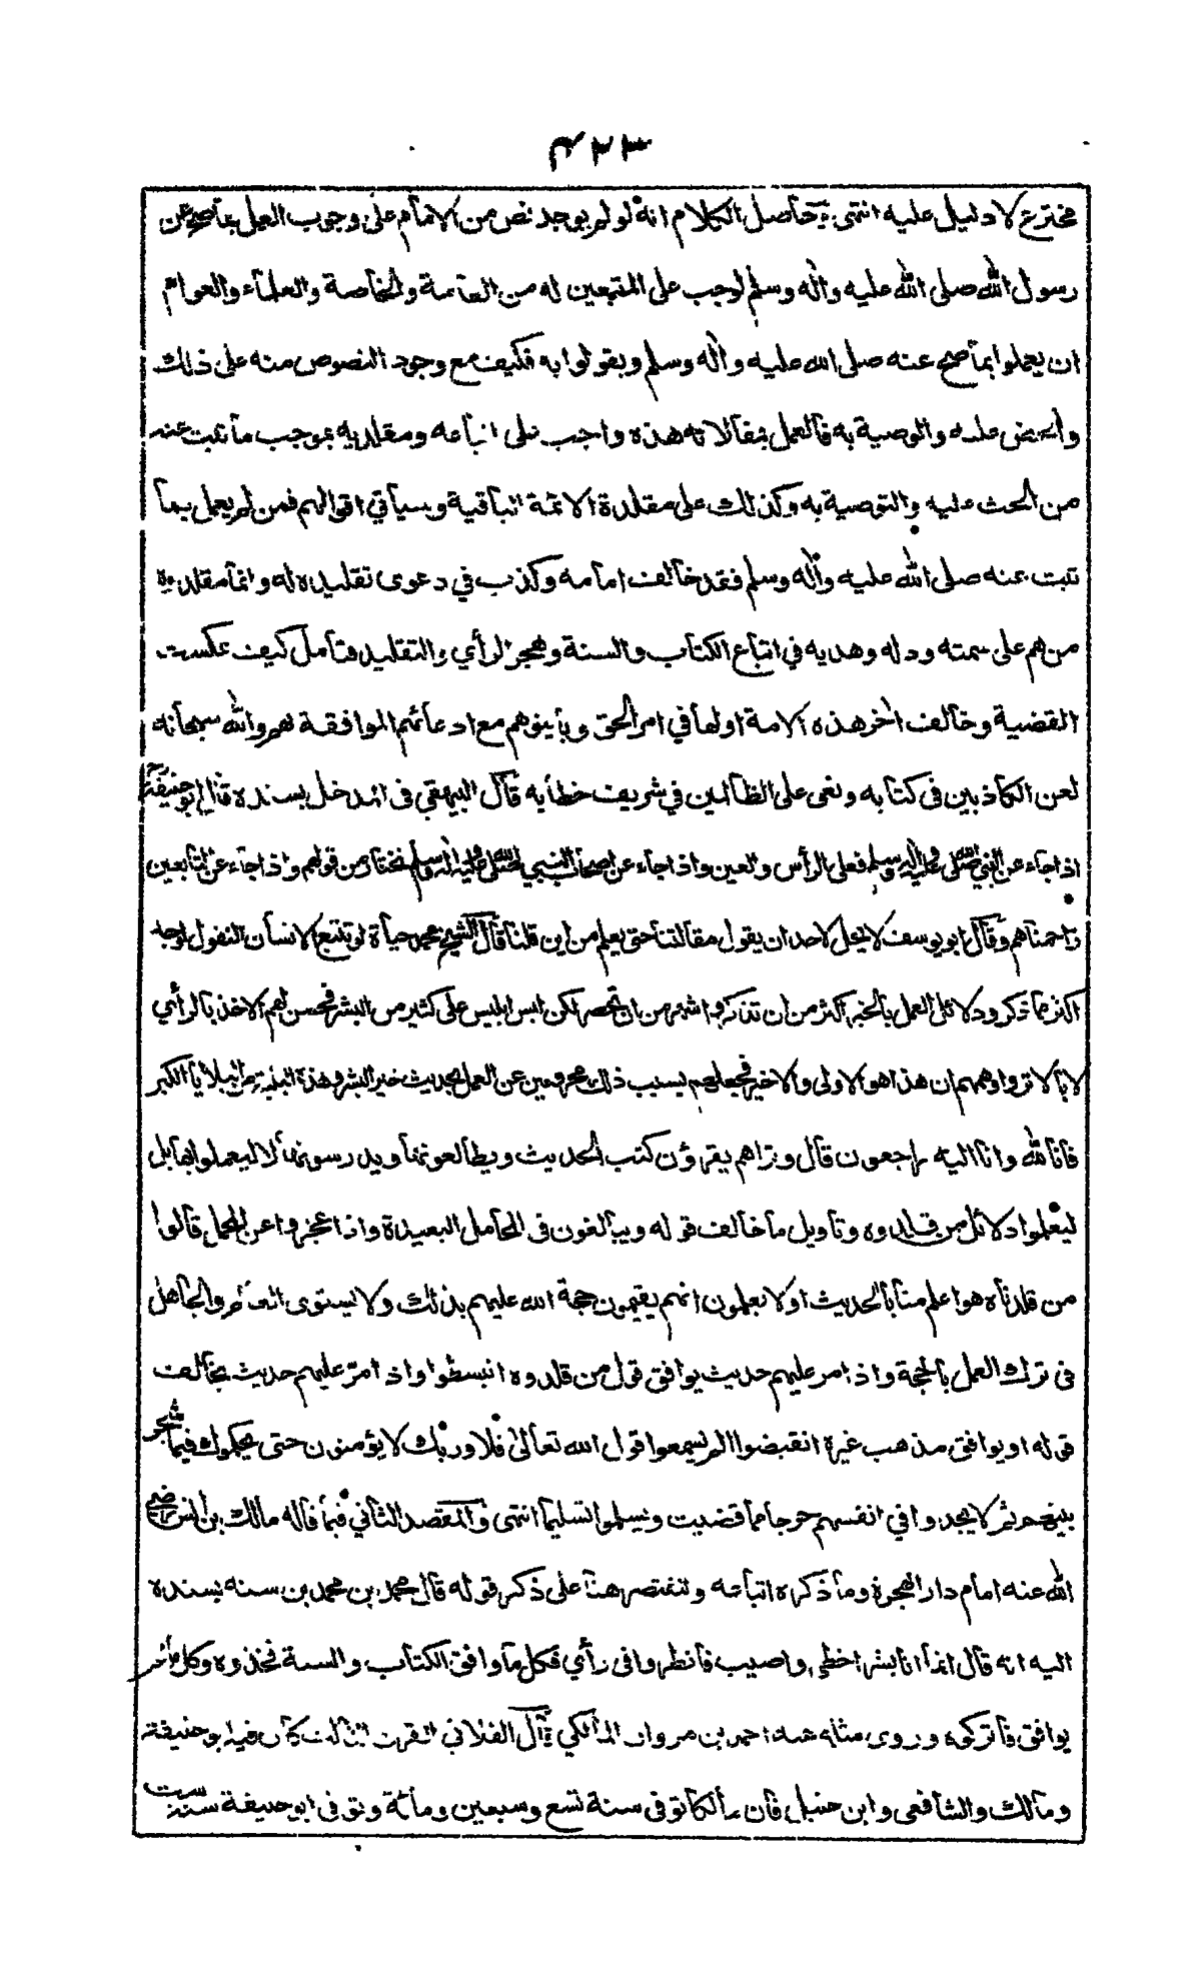 ٤٢٣
مخترع لا دليل عليه انتهى فحاصل الكلام انه لو لم يوجد نص من الامام على وجوب العمل بما صح عن
رسول الله صلى الله عليه واله وسلم لوجب على المتبعين له من العامة والخاصة والعلماء والعوام
ان يعملوا بما صح عنه صلى الله عليه واله وسلم ويقولوا به فكيف مع وجود النصوص منه على ذلك
والحض عليه والوصية به فالعمل بمقالاته هذه واجب على اتباعه ومقلديه بموجب ما ثبت عنه
من الحث عليه والتوصية به وكذلك على مقلدة الائمة الباقية وسيأتي اقوالهم فمن لم يعمل بما
ثبت عنه صلى الله عليه واله وسلم فقد خالف امامه وكذب في دعوى تقليده له وانما مقلديه
من هم على سمته ودله وهديه في اتباع الكتاب والسنة وهجر الرأي والتقليد فتأمل كيف عكست
القضية وخالف اخر هذه الامة اولها في امر الحق وباينوهم مع ادعائهم الموافقة لهم والله سبحانه
لعن الكاذبين في كتابه ونعى على الظالمين في شريف خطابه قال البيهقي في المدخل بسنده قال ابو حنيفة رح
اذا جاء عن النبي صلى الله عليه واله وسلم فعلى الرأس والعين واذا جاء عن اصحاب النبي صلى الله عليه واله وسلم نختار من قولهم واذا جاء عن التابعين
زاحمناهم وقال ابو يوسف لا يحل لاحد ان يقول مقالتنا حتى يعلم من اين قلنا قال الشيخ محمد حياة لو تتبع الانسان النقول لوجد
اكثر مما ذكر ودلائل العمل بالخبر اكثر من ان تذكر واشهر من ان تحصر لكن لبس ابليس على كثير من البشر فحسن لهم الاخذ بالرأي
لا بالاثر واوهمهم ان هذا هو الاولى والاخير فجعلهم بسبب ذلك محرومين عن العمل بحديث خير البشر وهذه البلية من البلايا الكبر
فانا لله وانا اليه راجعون قال وتراهم يقرؤن كتب الحديث ويطالعونها ويدرسونها لا ليعملوا بها بل
ليعلموا دلائل من قلدوه وتأويل ما خالف قوله ويبالغون في المحامل البعيدة واذا عجزوا عن المحمل قالوا
من قلدناه هو اعلم منا بالحديث اولا يعلمون انهم يقيمون حجة الله عليهم بذلك ولا يستوى العالم والجاهل
في ترك العمل بالحجة واذا مر عليهم حديث يوافق قول من قلدوه انبسطوا واذا مر عليهم حديث يخالف
قوله او يوافق مذهب غيره انقبضوا الم يسمعوا قول الله تعالى فلا وربك لا يؤمنون حتى يحكموك فيما شجر
بينهم ثم لا يجدوا في انفسهم حرجا مما قضيت ويسلموا تسليما انتهى والمقصد الثاني فيما قاله مالك بن انس رضي
الله عنه امام دار الهجرة وما ذكره اتباعه ولنقتصر هنا على ذكر قوله قال محمد بن محمد بن سنه بسنده
اليه انه قال انما انا بشر اخطي واصيب فانظروا في رأي فكل ما وافق الكتاب والسنة فخذوه وكل ما لم
يوافق فاتركوه وروى مثله عنه احمد بن مروان المالكي قال الفلاني القرن الثالث كان فيه ابو حنيفة
ومالك والشافعي وابن حنبل فان مالكا توفي سنة تسع وسبعين ومائة وتوفي ابو حنيفة سنة